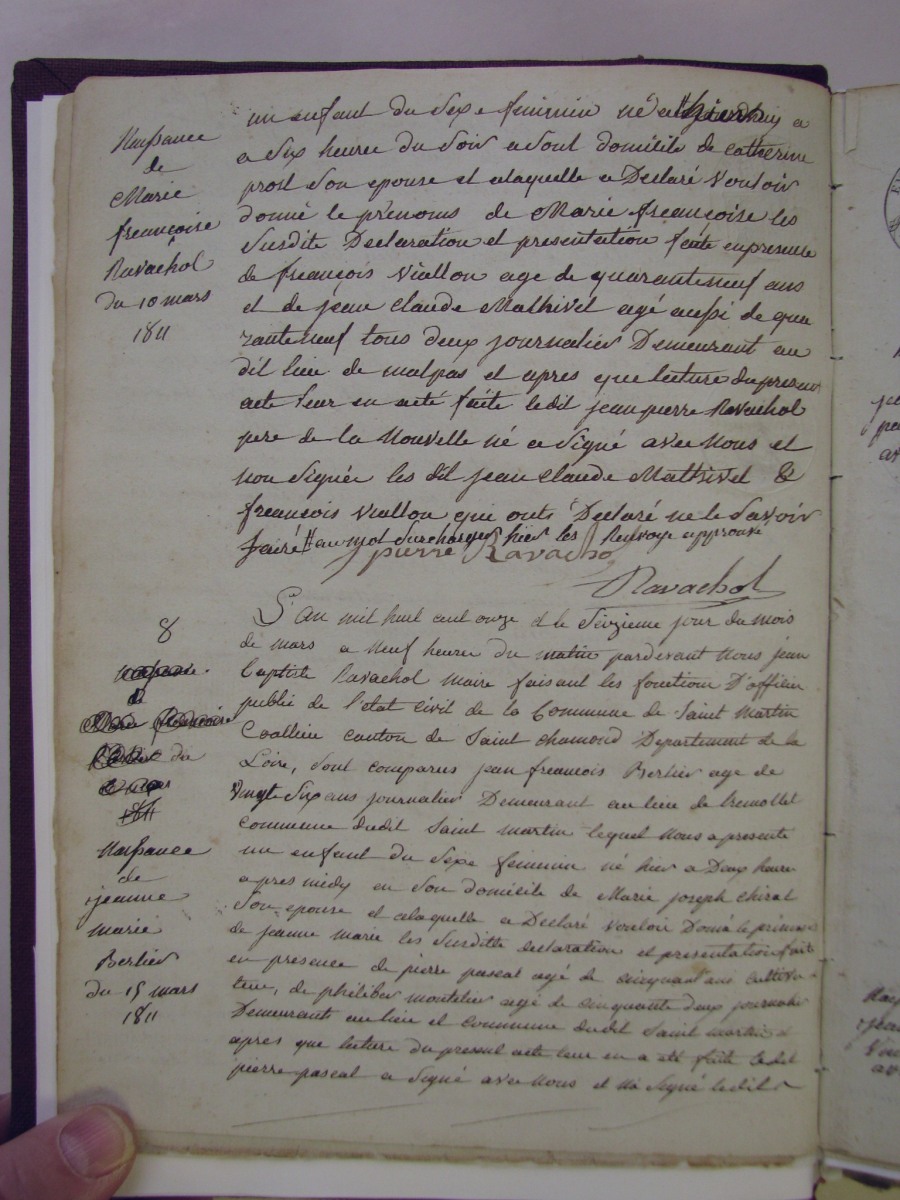 Naissance
de
Marie
françoise
Ravachol
du 10 mars
1811
un enfant du Sexe feminin né hier a
a Six heures du Soir a Sont domicile de Catherine
prost Son epouse et alaquelle a Declaré vouloir
donné le prénoms de Marie françoise les
Surdite Declaration et presentation faite enpresence
de françois viallon age de quaranteneuf ans
et de jean Claude Mathivet agé aussi de qua
ranteneuf tous deux journalier Demeurant au
dit lieu de malpas et apres que lecture dupresent
acte leur en aeté faite ledit jean pierre Ravachol
pere de la Nouvelle né a Signé avec Nous et
non Signée les dit jean Claude Mathivet &
françois viallon qui onts Declaré ne le Savoir
fairé # au mot Surcharger hier les Renvoye approuvé
pierre Ravacho
Ravachol
8
du
1811
Naissance
de
jeanne
marie
Berlier
du 15 mars
1811
L'an mil huit cent onze et le Seizieme jour du mois
de mars a Neuf heures du matin pardevant Nous jean
Captiste Ravachol maire faisant les fonctions D'officier
public de l'état Civil de la Commune de Saint Martin
Coallieu canton de Saint chamond Departement de la
Loire, Sont comparus jean francois Berlier age de
vingt Six ans journalier Demeurant au lieu de tremollet
commune dudit Saint martin lequel Nous a presenté
un enfant du Sexe feminin né hier a Deux heure
apres midy en Son domicile de Marie joseph Chirat
Son epouse et alaquelle a Declaré vouloir Donné le prénom
de jeanne marie les Surditte declaration et presentation faite
en presence de pierre pascal agé de cinquant ans cultiva-
teur, de philiber montelier agé de cinquante deux journalier
Demeurants au lieu et Commune dudit Saint martin et
apres que lecture du present acte leur en a eté faite ledit
pierre pascal a Signé avec Nous et Signé ledit